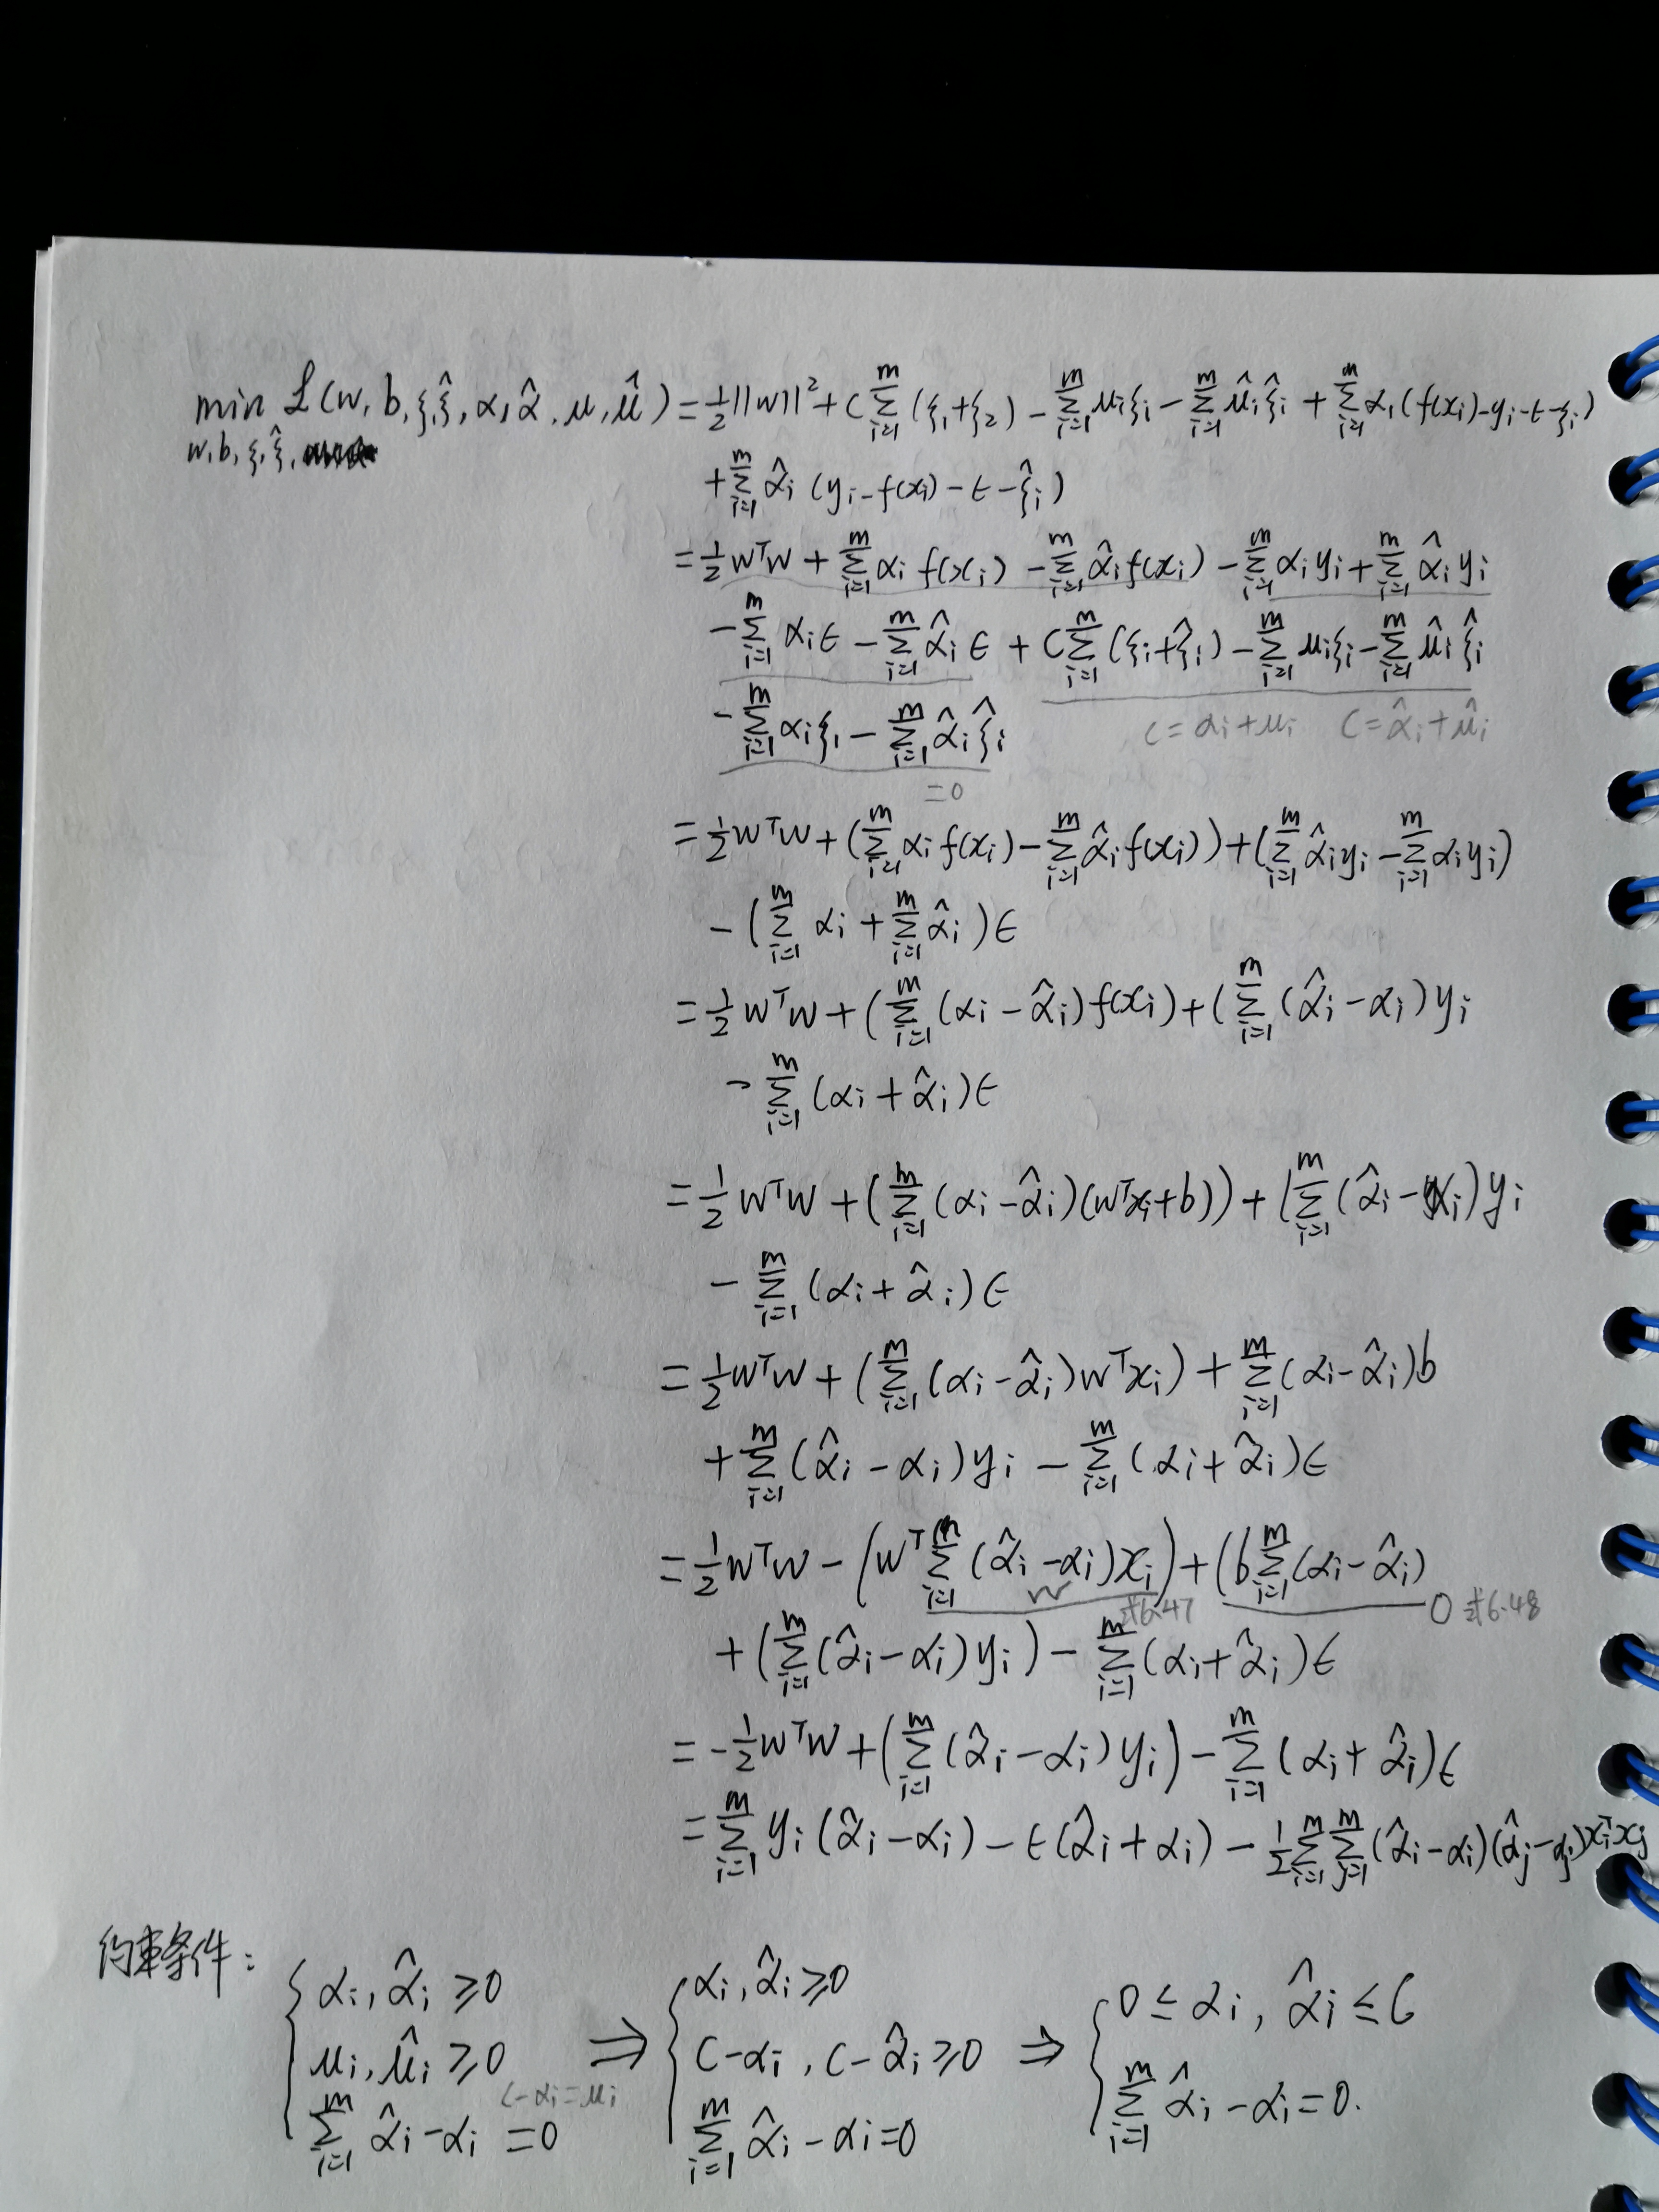 min L(w, b, ξ, ξ̂, α, α̂, μ, μ̂) = ½||w||² + C∑_{i=1}^m (ξ₁+ξ₂) − ∑_{i=1}^m μᵢξᵢ − ∑_{i=1}^m μ̂ᵢξ̂ᵢ + ∑_{i=1}^m αᵢ(f(xᵢ)−yᵢ−ϵ−ξᵢ)
w, b, ξ, ξ̂,
+∑_{i=1}^m α̂ᵢ (yᵢ−f(xᵢ)−ϵ−ξ̂ᵢ)
= ½wᵀw + ∑_{i=1}^m αᵢ f(xᵢ) − ∑_{i=1}^m α̂ᵢf(xᵢ) − ∑_{i=1}^m αᵢyᵢ + ∑_{i=1}^m α̂ᵢyᵢ
−∑_{i=1}^m αᵢϵ − ∑_{i=1}^m α̂ᵢϵ + C∑_{i=1}^m (ξᵢ+ξ̂ᵢ) − ∑_{i=1}^m μᵢξᵢ − ∑_{i=1}^m μ̂ᵢξ̂ᵢ
−∑_{i=1}^m αᵢξᵢ − ∑_{i=1}^m α̂ᵢξ̂ᵢ C=αᵢ+μᵢ C=α̂ᵢ+μ̂ᵢ
=0
= ½wᵀw + (∑_{i=1}^m αᵢf(xᵢ) − ∑_{i=1}^m α̂ᵢf(xᵢ)) + (∑_{i=1}^m α̂ᵢyᵢ − ∑_{i=1}^m αᵢyᵢ)
− (∑_{i=1}^m αᵢ + ∑_{i=1}^m α̂ᵢ)ϵ
= ½wᵀw + (∑_{i=1}^m (αᵢ − α̂ᵢ)f(xᵢ) + (∑_{i=1}^m (α̂ᵢ − αᵢ)yᵢ
− ∑_{i=1}^m (αᵢ + α̂ᵢ)ϵ
= ½wᵀw + (∑_{i=1}^m (αᵢ−α̂ᵢ)(wᵀxᵢ+b)) + (∑_{i=1}^m (α̂ᵢ−αᵢ)yᵢ
− ∑_{i=1}^m (αᵢ + α̂ᵢ)ϵ
= ½wᵀw + (∑_{i=1}^m (αᵢ−α̂ᵢ)wᵀxᵢ) + ∑_{i=1}^m (αᵢ−α̂ᵢ)b
+ ∑_{i=1}^m (α̂ᵢ − αᵢ)yᵢ − ∑_{i=1}^m (αᵢ+α̂ᵢ)ϵ
= ½wᵀw − (wᵀ∑_{i=1}^m (α̂ᵢ−αᵢ)xᵢ) + (b∑_{i=1}^m (αᵢ−α̂ᵢ)
w 式6.47 0 式6.48
+ (∑_{i=1}^m (α̂ᵢ−αᵢ)yᵢ) − ∑_{i=1}^m (αᵢ+α̂ᵢ)ϵ
= −½wᵀw + (∑_{i=1}^m (α̂ᵢ−αᵢ)yᵢ) − ∑_{i=1}^m (αᵢ+α̂ᵢ)ϵ
= ∑_{i=1}^m yᵢ(α̂ᵢ−αᵢ) − ϵ(α̂ᵢ+αᵢ) − ½∑_{i=1}^m∑_{j=1}^m (α̂ᵢ−αᵢ)(α̂ⱼ−αⱼ)xᵢᵀxⱼ
约束条件:
{ αᵢ, α̂ᵢ ≥0 { αᵢ, α̂ᵢ ≥0 { 0 ≤ αᵢ, α̂ᵢ ≤ C
μᵢ, μ̂ᵢ ≥0 ⇒ C−αᵢ, C−α̂ᵢ ≥0 ⇒
C−αᵢ=μᵢ
∑_{i=1}^m α̂ᵢ−αᵢ =0 ∑_{i=1}^m α̂ᵢ−αᵢ=0 ∑_{i=1}^m α̂ᵢ−αᵢ=0.